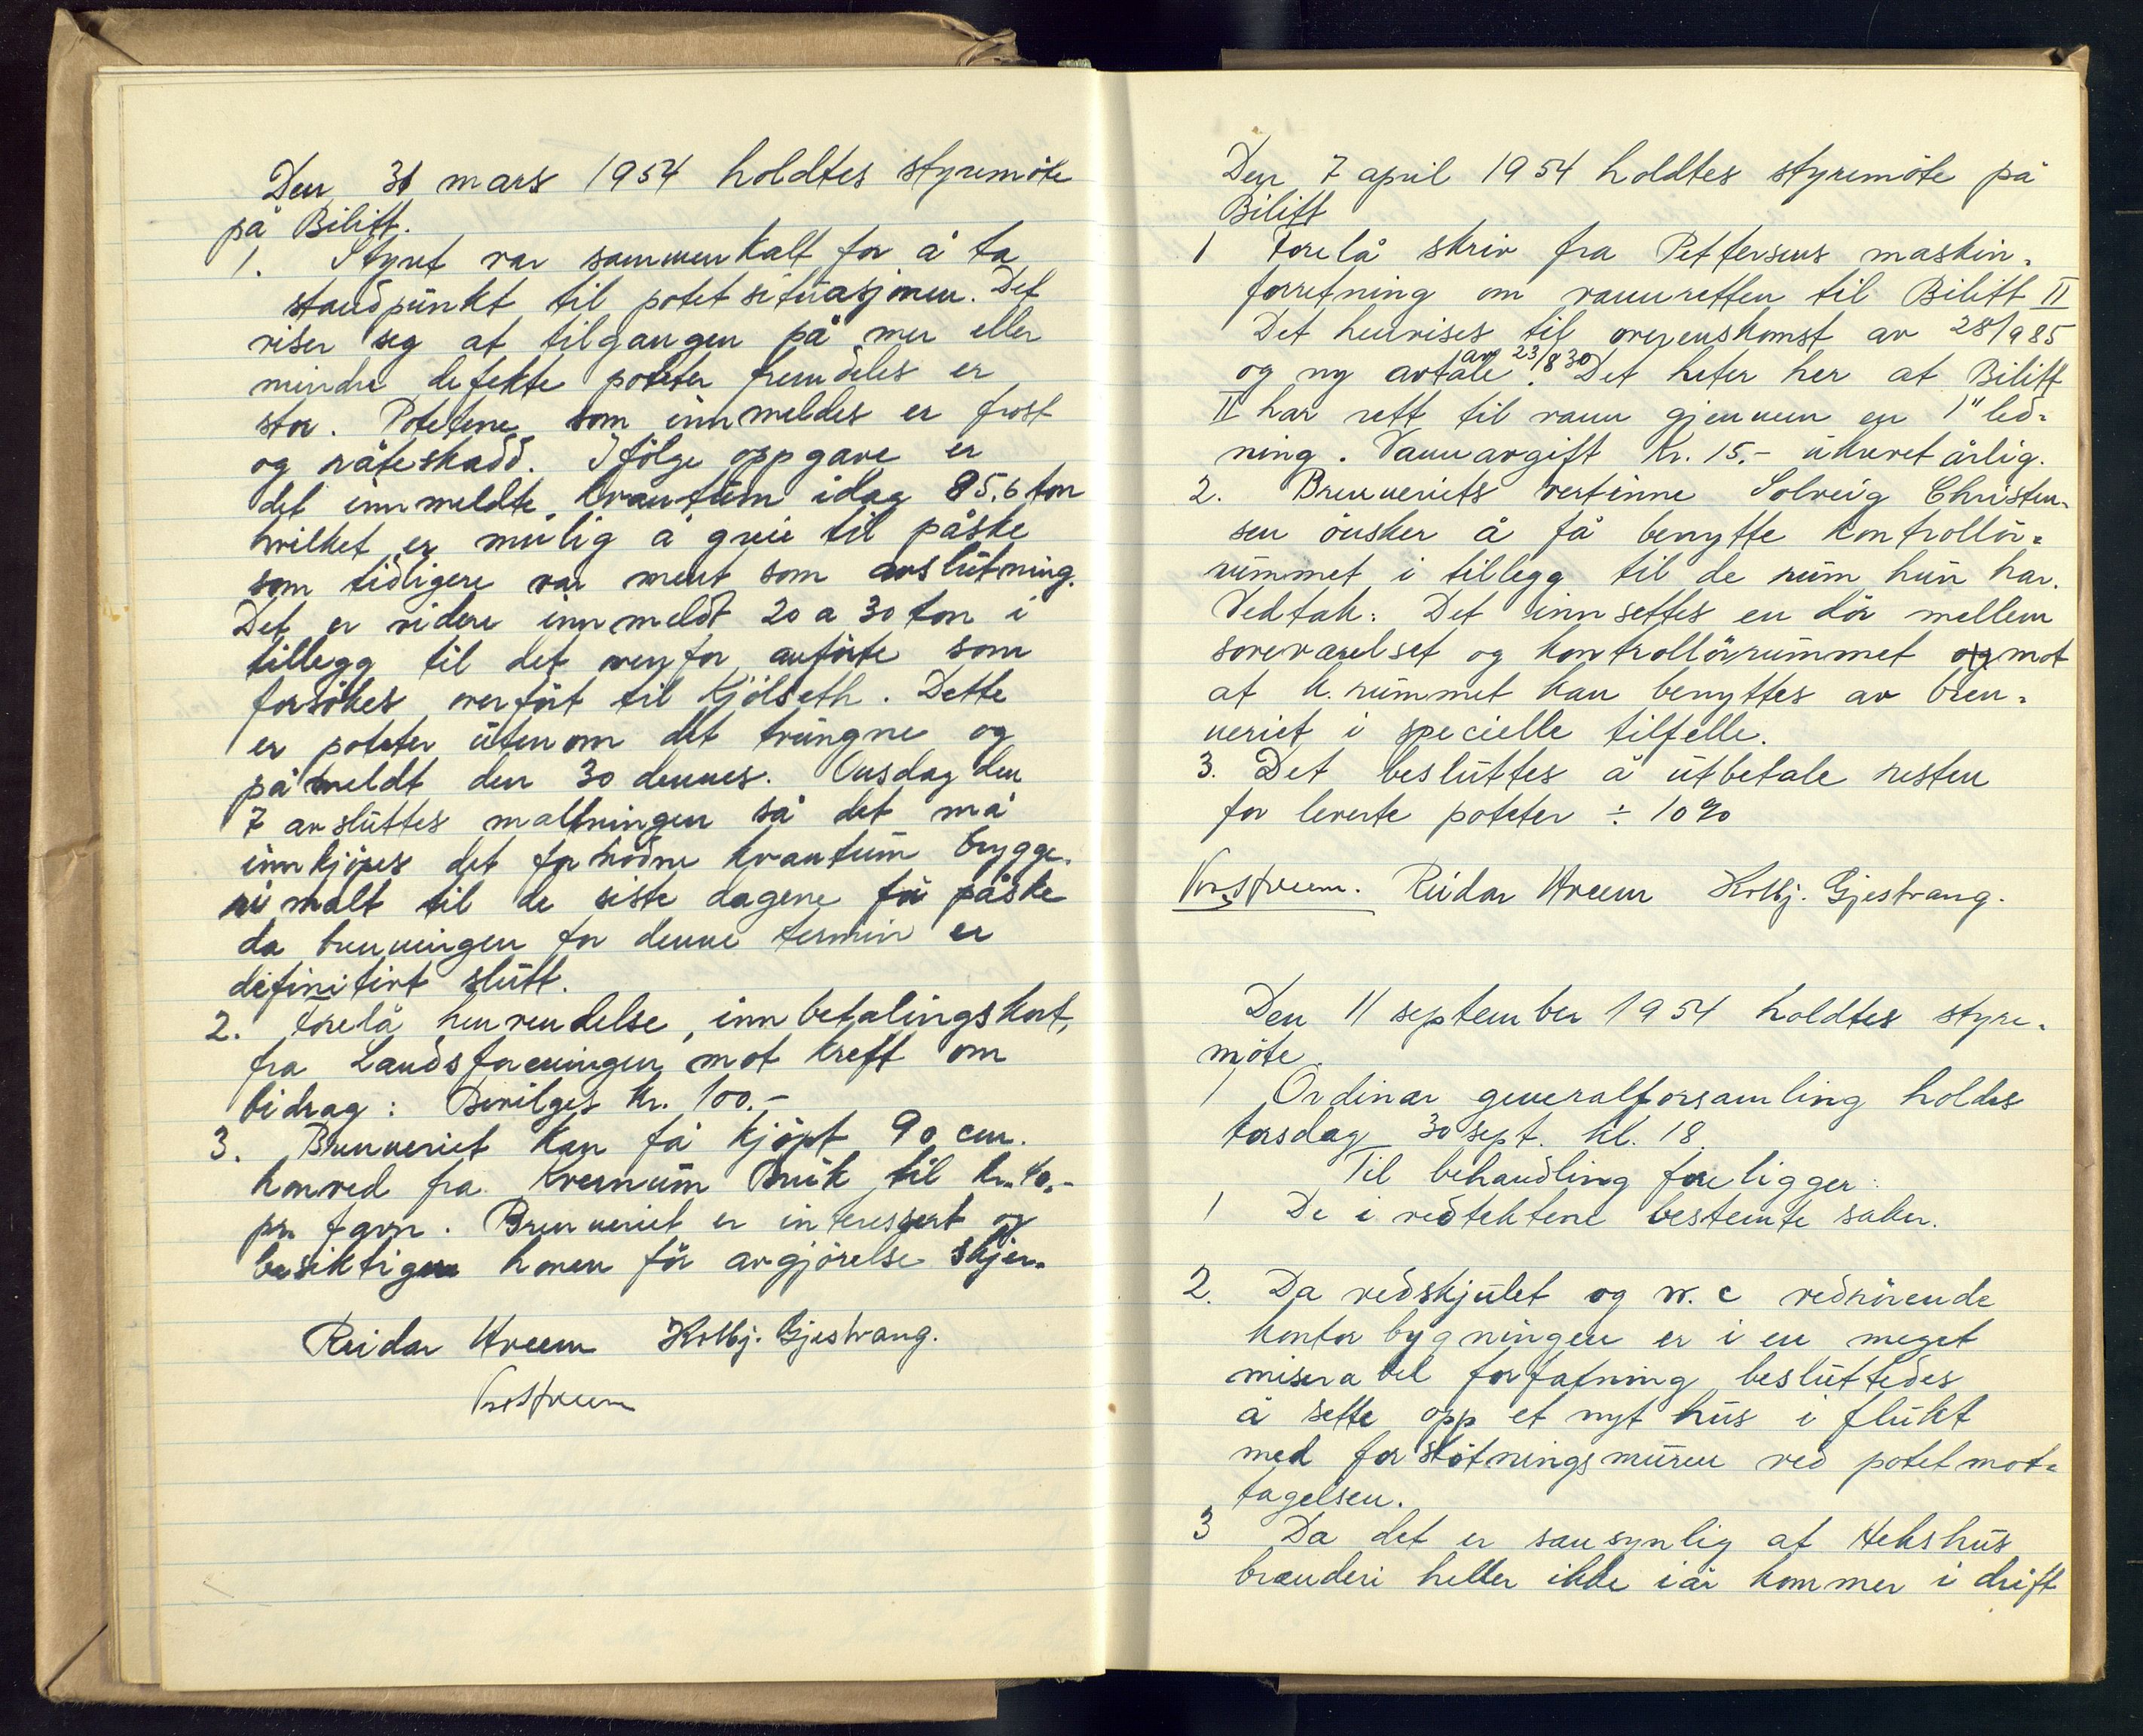 Den 31 mars 1954 holdtes styremöte
på Bilitt.
1. Styret var sammenkalt for å ta
standpunkt til potetsituasjonen. Det
viser seg at tilgangen på mer eller
mindre defekte poteter fremdeles er
stor. Potetene som innmeldes er frost
og råteskadd. Ifölge oppgave er
det innmeldte kvantum idag 85,6 ton
hvilket er mulig å greie til påske
som tidligere var ment som avslutning.
Det er videre innmeldt 20 a 30 ton i
tillegg til det ovenfor anförte som
forsökes overfört til Kjölseth. Dette
er poteter utenom det trungne og
påmeldt den 30 dennes. Onsdag den
7 avsluttes maltningen så det må
innkjöpes det fornödne kvantum brygge-
ri malt til de siste dagene för påske
da brenningen for denne termin er
definitivt slutt.
2. Forelå henvendelse, innbetalingskort,
fra Landsforeningen mot kreft om
bidrag: Bevilges kr. 100.-
3. Brenneriet kan få kjöpt 90 cm.
honved fra Kvernum Bruk til kr. 40.-
pr. favn. Brenneriet er interessert og
besiktiger honen för avgjörelse skjer.
Reidar Hveem Kolbj. Gjestvang.
Den 7 april 1954 holdtes styremöte på
Bilitt
1 Forelå skriv fra Pettersens maskin-
forretning om vannretten til Bilitt II
Det henvises til overenskomst av 28/9 85
og ny avtale av 23/8 30. Det heter her at Bilitt
II har rett til vann gjennem en 1" led-
ning. Vannavgift kr. 15.- ukuret årlig.
2. Brenneriets vertinne Solveig Christen-
sen önsker å få benytte kontrollör-
rummet i tillegg til de rum hun har.
Vedtak: Det innsettes en dör mellem
soveværelset og kontrollörrummet mot
at k.rummet kan benyttes av bren-
neriet i specielle tilfelle.
3. Det besluttes å utbetale resten
for leverte poteter ÷ 10%
Reidar Hveem Kolbj. Gjestvang.
Den 11 september 1954 holdtes styre-
möte.
1 Ordinær generalforsamling holdes
torsdag 30 sept. kl. 18.
Til behandling foreligger:
1 De i vedtektene bestemte saker.
2. Da vedskjulet og w.c vedrörende
kontorbygningen er i en meget
miserabel forfatning besluttedes
å sette opp et nytt hus i flukt
med forstötningsmuren ved potetmot-
tagelsen.
3 Da det er sansynlig at Hekshus
brænderi heller ikke i år kommer i drift